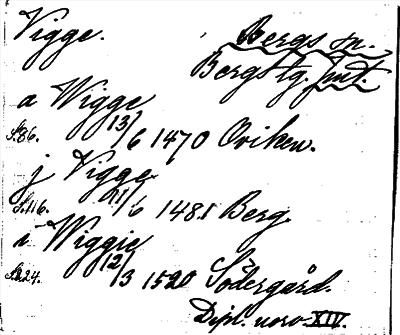 Vigge.
Bergs sn.
Bergs tg. Jmt.
a Wigge
S.86. 13/6 1470 Oviken.
j Vigge
S.116. 11/6 1481 Berg.
i Wiggie
S.224. 12/3 1520 Södergård.
Dipl. norv. XIV.